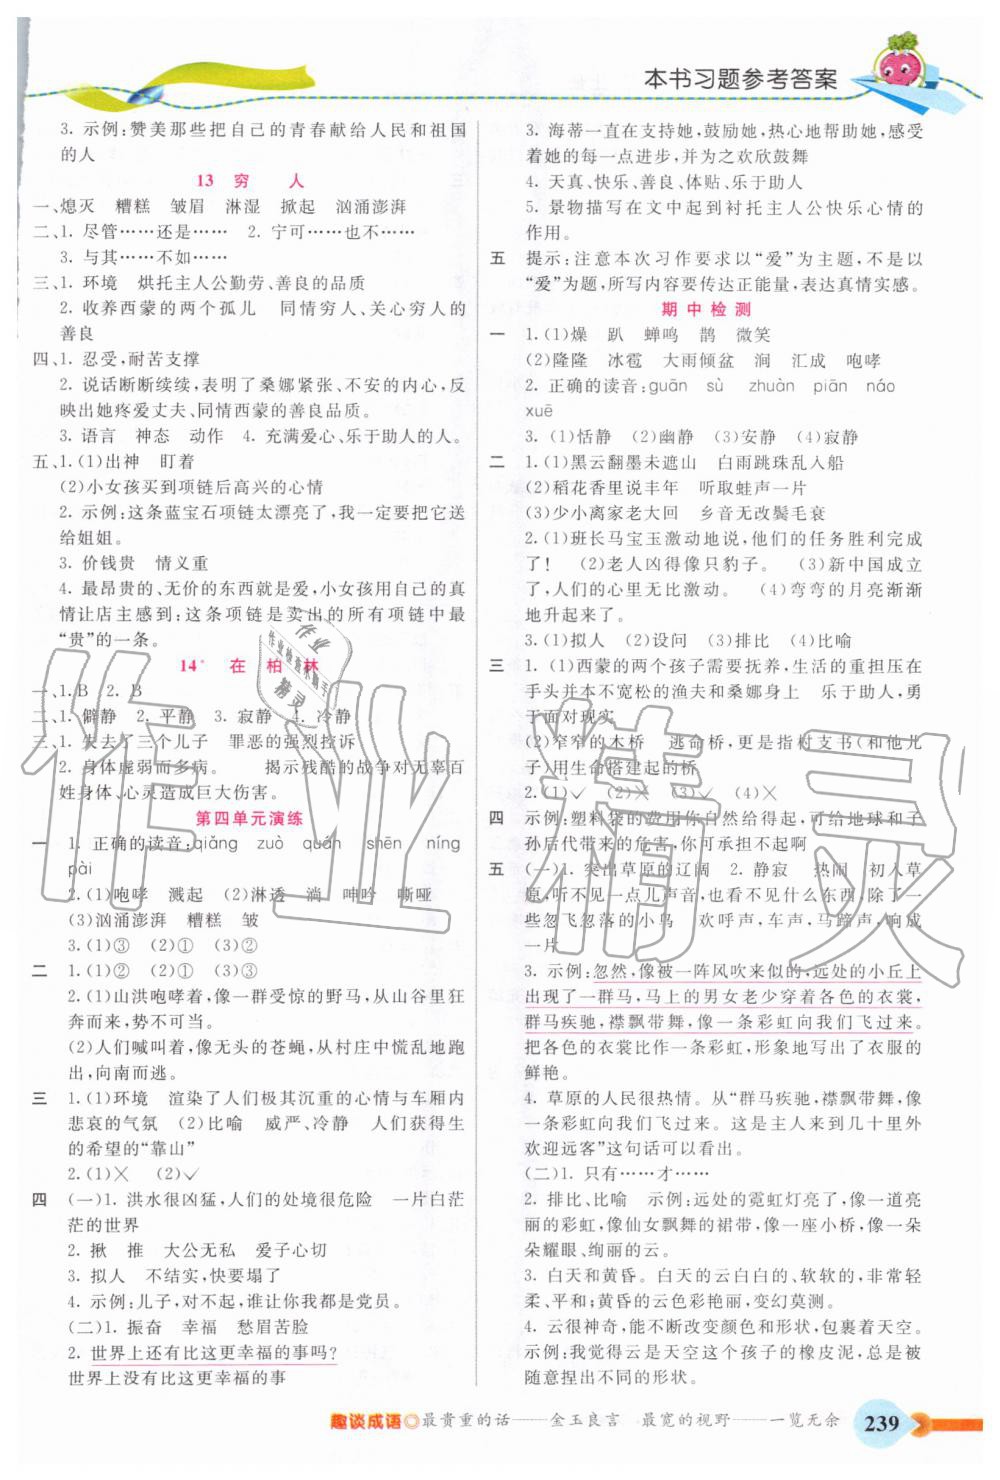 本书习题参考答案
3. 示例:赞美那些把自己的青春献给人民和祖国
的人
13 穷 人
一、熄灭 糟糕 皱眉 淋湿 掀起 汹涌澎湃
二、1. 尽管……还是…… 2. 宁可……也不……
3. 与其……不如……
三、1. 环境 烘托主人公勤劳、善良的品质
2. 收养西蒙的两个孤儿 同情穷人、关心穷人的
善良
四、1. 忍受,耐苦支撑
2. 说话断断续续,表明了桑娜紧张、不安的内心,反
映出她疼爱丈夫、同情西蒙的善良品质。
3. 语言 神态 动作 4. 充满爱心、乐于助人的人。
五、1. (1)出神 盯着
(2)小女孩买到项链后高兴的心情
2. 示例:这条蓝宝石项链太漂亮了,我一定要把它送
给姐姐。
3. 价钱贵 情义重
4. 最昂贵的、无价的东西就是爱,小女孩用自己的真
情让店主感到:这条项链是卖出的所有项链中最
“贵”的一条。
14* 在 柏 林
一、1. B 2. B
二、1. 僻静 2. 平静 3. 寂静 4. 冷静
三、1. 失去了三个儿子 罪恶的强烈控诉
2. 身体虚弱而多病。 揭示残酷的战争对无辜百
姓身体、心灵造成巨大伤害。
第四单元演练
一 1. 正确的读音:qiǎng zuò quán shēn níng
pài
2.(1)咆哮 溅起 (2)淋透 淌 呻吟 嘶哑
(3)汹涌澎湃 糟糕 皱
3.(1)③ (2)① (3)②
二 1.(1)② (2)① (3)②
2.(1)山洪咆哮着,像一群受惊的野马,从山谷里狂
奔而来,势不可当。
(2)人们喊叫着,像无头的苍蝇,从村庄中慌乱地跑
出,向南而逃。
三 1.(1)环境 渲染了人们极其沉重的心情与车厢内
悲哀的气氛 (2)比喻 威严、冷静 人们获得生
的希望的“靠山”
2.(1)✕ (2)✓
四 (一)1. 洪水很凶猛,人们的处境很危险 一片白茫
茫的世界
2. 揪 推 大公无私 爱子心切
3. 拟人 不结实,快要塌了
4. 示例:儿子,对不起,谁让你我都是党员。
(二)1. 振奋 幸福 愁眉苦脸
2. 世界上还有比这更幸福的事吗?
世界上没有比这更幸福的事
3. 海蒂一直在支持她,鼓励她,热心地帮助她,感受
着她的每一点进步,并与之欢欣鼓舞
4. 天真、快乐、善良、体贴、乐于助人
5. 景物描写在文中起到衬托主人公快乐心情的
作用。
五 提示:注意本次习作要求以“爱”为主题,不是以
“爱”为题,所写内容要传达正能量,表达真情实感。
期中检测
一 1.(1)燥 趴 蝉鸣 鹊 微笑
(2)隆隆 冰雹 大雨倾盆 涧 汇成 咆哮
2. 正确的读音:guān sù zhuàn piān náo
xuē
3.(1)恬静 (2)幽静 (3)安静 (4)寂静
二 1.(1)黑云翻墨未遮山 白雨跳珠乱入船
(2)稻花香里说丰年 听取蛙声一片
(3)少小离家老大回 乡音无改鬓毛衰
2.(1)班长马宝玉激动地说,他们的任务胜利完成
了! (2)老人凶得像只豹子。 (3)新中国成立
了,人们的心里无比激动。 (4)弯弯的月亮渐渐
地升起来了。
3.(1)拟人 (2)设问 (3)排比 (4)比喻
三 1.(1)西蒙的两个孩子需要抚养,生活的重担压在
手头并不宽松的渔夫和桑娜身上 乐于助人,勇
于面对现实
(2)窄窄的木桥 逃命桥,更是指村支书(和他儿
子)用生命搭建起的桥
2.(1)✓ (2)✕ (3)✓ (4)✕
四 示例:塑料袋的费用你自然给得起,可给地球和子
孙后代带来的危害,你可承担不起啊
五 (一)1. 突出草原的辽阔 2. 静寂 热闹 初入草
原,听不见一点儿声音,也看不见什么东西,除了一
些忽飞忽落的小鸟 欢呼声,车声,马蹄声,响成
一片
3. 示例:忽然,像被一阵风吹来似的,远处的小丘上
出现了一群马,马上的男女老少穿着各色的衣裳,
群马疾驰,襟飘带舞,像一条彩虹向我们飞过来。
把各色的衣裳比作一条彩虹,形象地写出了衣服的
鲜艳。
4. 草原的人民很热情。从“群马疾驰,襟飘带舞,像
一条彩虹向我们飞过来。这是主人来到几十里外
欢迎远客”这句话可以看出。
(二)1. 只有……才……
2. 排比、比喻 示例:远处的霓虹灯亮了,像一道亮
丽的彩虹,像仙女飘舞的裙带,像一座小桥,像一朵
朵耀眼、绚丽的云。
3. 白天和黄昏。白天的云白白的、软软的,非常轻
柔、平和;黄昏的云色彩艳丽,变幻莫测。
4. 云很神奇,能不断改变颜色和形状,包裹着天空。
示例:我觉得云是天空这个孩子的橡皮泥,总是被
随意捏出不同的形状。
趣谈成语◎最贵重的话——金玉良言 最宽的视野——一览无余
239
作业精灵
作业
作业检查小助手
精灵